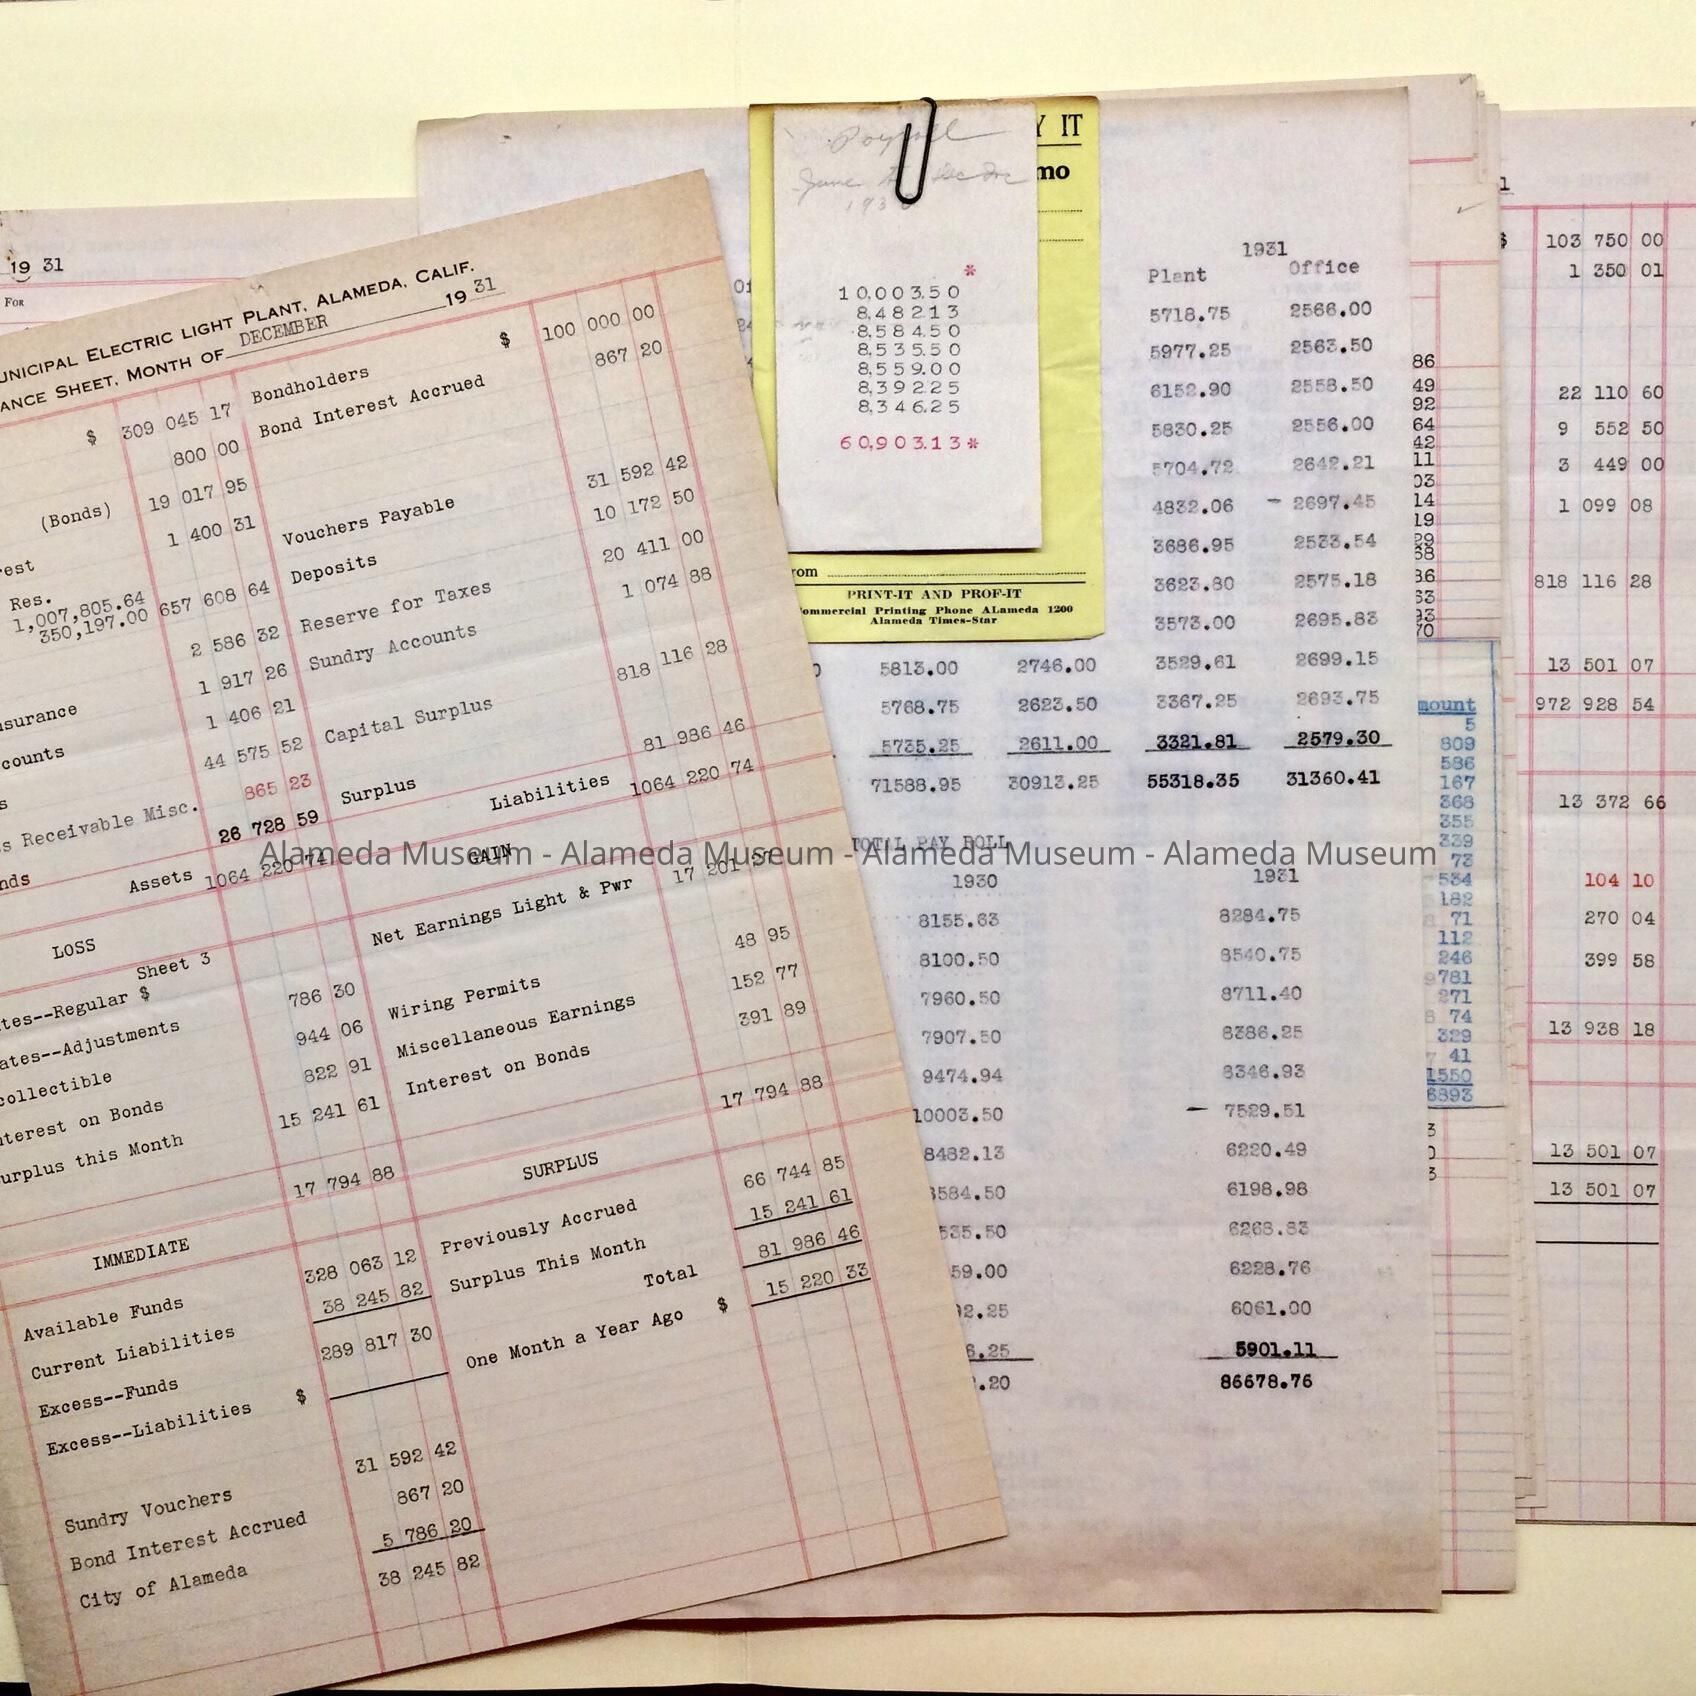 19 31
For
UNICIPAL ELECTRIC LIGHT PLANT, ALAMEDA, CALIF.
ANCE SHEET, MONTH OF DECEMBER 19 31
$ 309 045 17 Bondholders $ 100 000 00
800 00 Bond Interest Accrued 867 20
(Bonds) 19 017 95
rest 1 400 31 Vouchers Payable 31 592 42
Res. Deposits 10 172 50
1,007,805.64
350,197.00 657 608 64 Reserve for Taxes 20 411 00
2 586 32 Sundry Accounts 1 074 88
nsurance 1 917 26
counts 1 406 21 Capital Surplus 818 116 28
s 44 575 52
s Receivable Misc. 865 23 Surplus 81 986 46
nds 26 728 59 Liabilities 1064 220 74
Assets 1064 220 74
LOSS GAIN
Sheet 3 Net Earnings Light & Pwr 17 201 27
tes--Regular $ 786 30
ates--Adjustments 944 06 Wiring Permits 48 95
collectible 822 91 Miscellaneous Earnings 152 77
nterest on Bonds 15 241 61 Interest on Bonds 391 89
urplus this Month
17 794 88 17 794 88
IMMEDIATE SURPLUS
Available Funds 328 063 12 Previously Accrued 66 744 85
Current Liabilities 38 245 82 Surplus This Month 15 241 61
Excess--Funds 289 817 30 Total 81 986 46
Excess--Liabilities $ One Month a Year Ago $ 15 220 33
Sundry Vouchers 31 592 42
Bond Interest Accrued 867 20
City of Alameda 5 786 20
38 245 82
Payroll
June to Dec Inc
Y IT
mo
*
10,003.50
8,482.13
8,584.50
8,535.50
8,559.00
8,392.25
8,346.25
60,903.13 *
rom
PRINT-IT AND PROF-IT
ommercial Printing Phone ALameda 1200
Alameda Times-Star
1931
Plant Office
5718.75 2566.00
5977.25 2563.50
6152.90 2558.50
5830.25 2556.00
5704.72 2642.21
4832.06 - 2697.45
3686.95 2533.54
3623.80 2575.18
3573.00 2695.83
5813.00 2746.00 3529.61 2699.15
5768.75 2623.50 3367.25 2693.75
5735.25 2611.00 3321.81 2579.30
71588.95 30913.25 55318.35 31360.41
TOTAL PAY ROLL
1930 1931
8155.63 8284.75
8100.50 8540.75
7960.50 8711.40
7907.50 8386.25
9474.94 8346.93
10003.50 - 7529.51
8482.13 6220.49
8584.50 6198.98
535.50 6268.83
59.00 6228.76
92.25 6061.00
6.25 5901.11
.20 86678.76
86
49
92
64
42
11
03
14
19
29
58
36
63
93
70
mount
5
809
586
167
368
355
339
73
534
182
71
112
246
781
271
74
329
41
1550
6893
3
0
3
1
$ 103 750 00
1 350 01
22 110 60
9 552 50
3 449 00
1 099 08
818 116 28
13 501 07
972 928 54
13 372 66
104 10
270 04
399 58
13 938 18
13 501 07
13 501 07
Alameda Museum - Alameda Museum - Alameda Museum - Alameda Museum